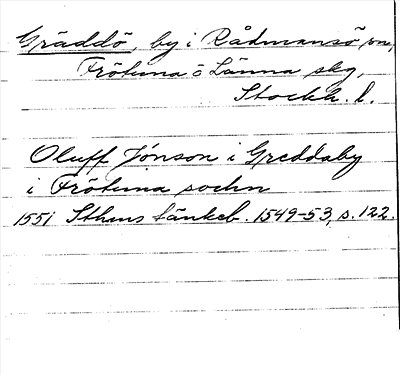 Gräddö, by i Rådmansö sn,
Frötuna o Länna skg,
Stockh. l.
Oluff Jónson i Greddaby
i Frötuna sochn
1551 Sthms tänkeb. 1549-53, s. 122.